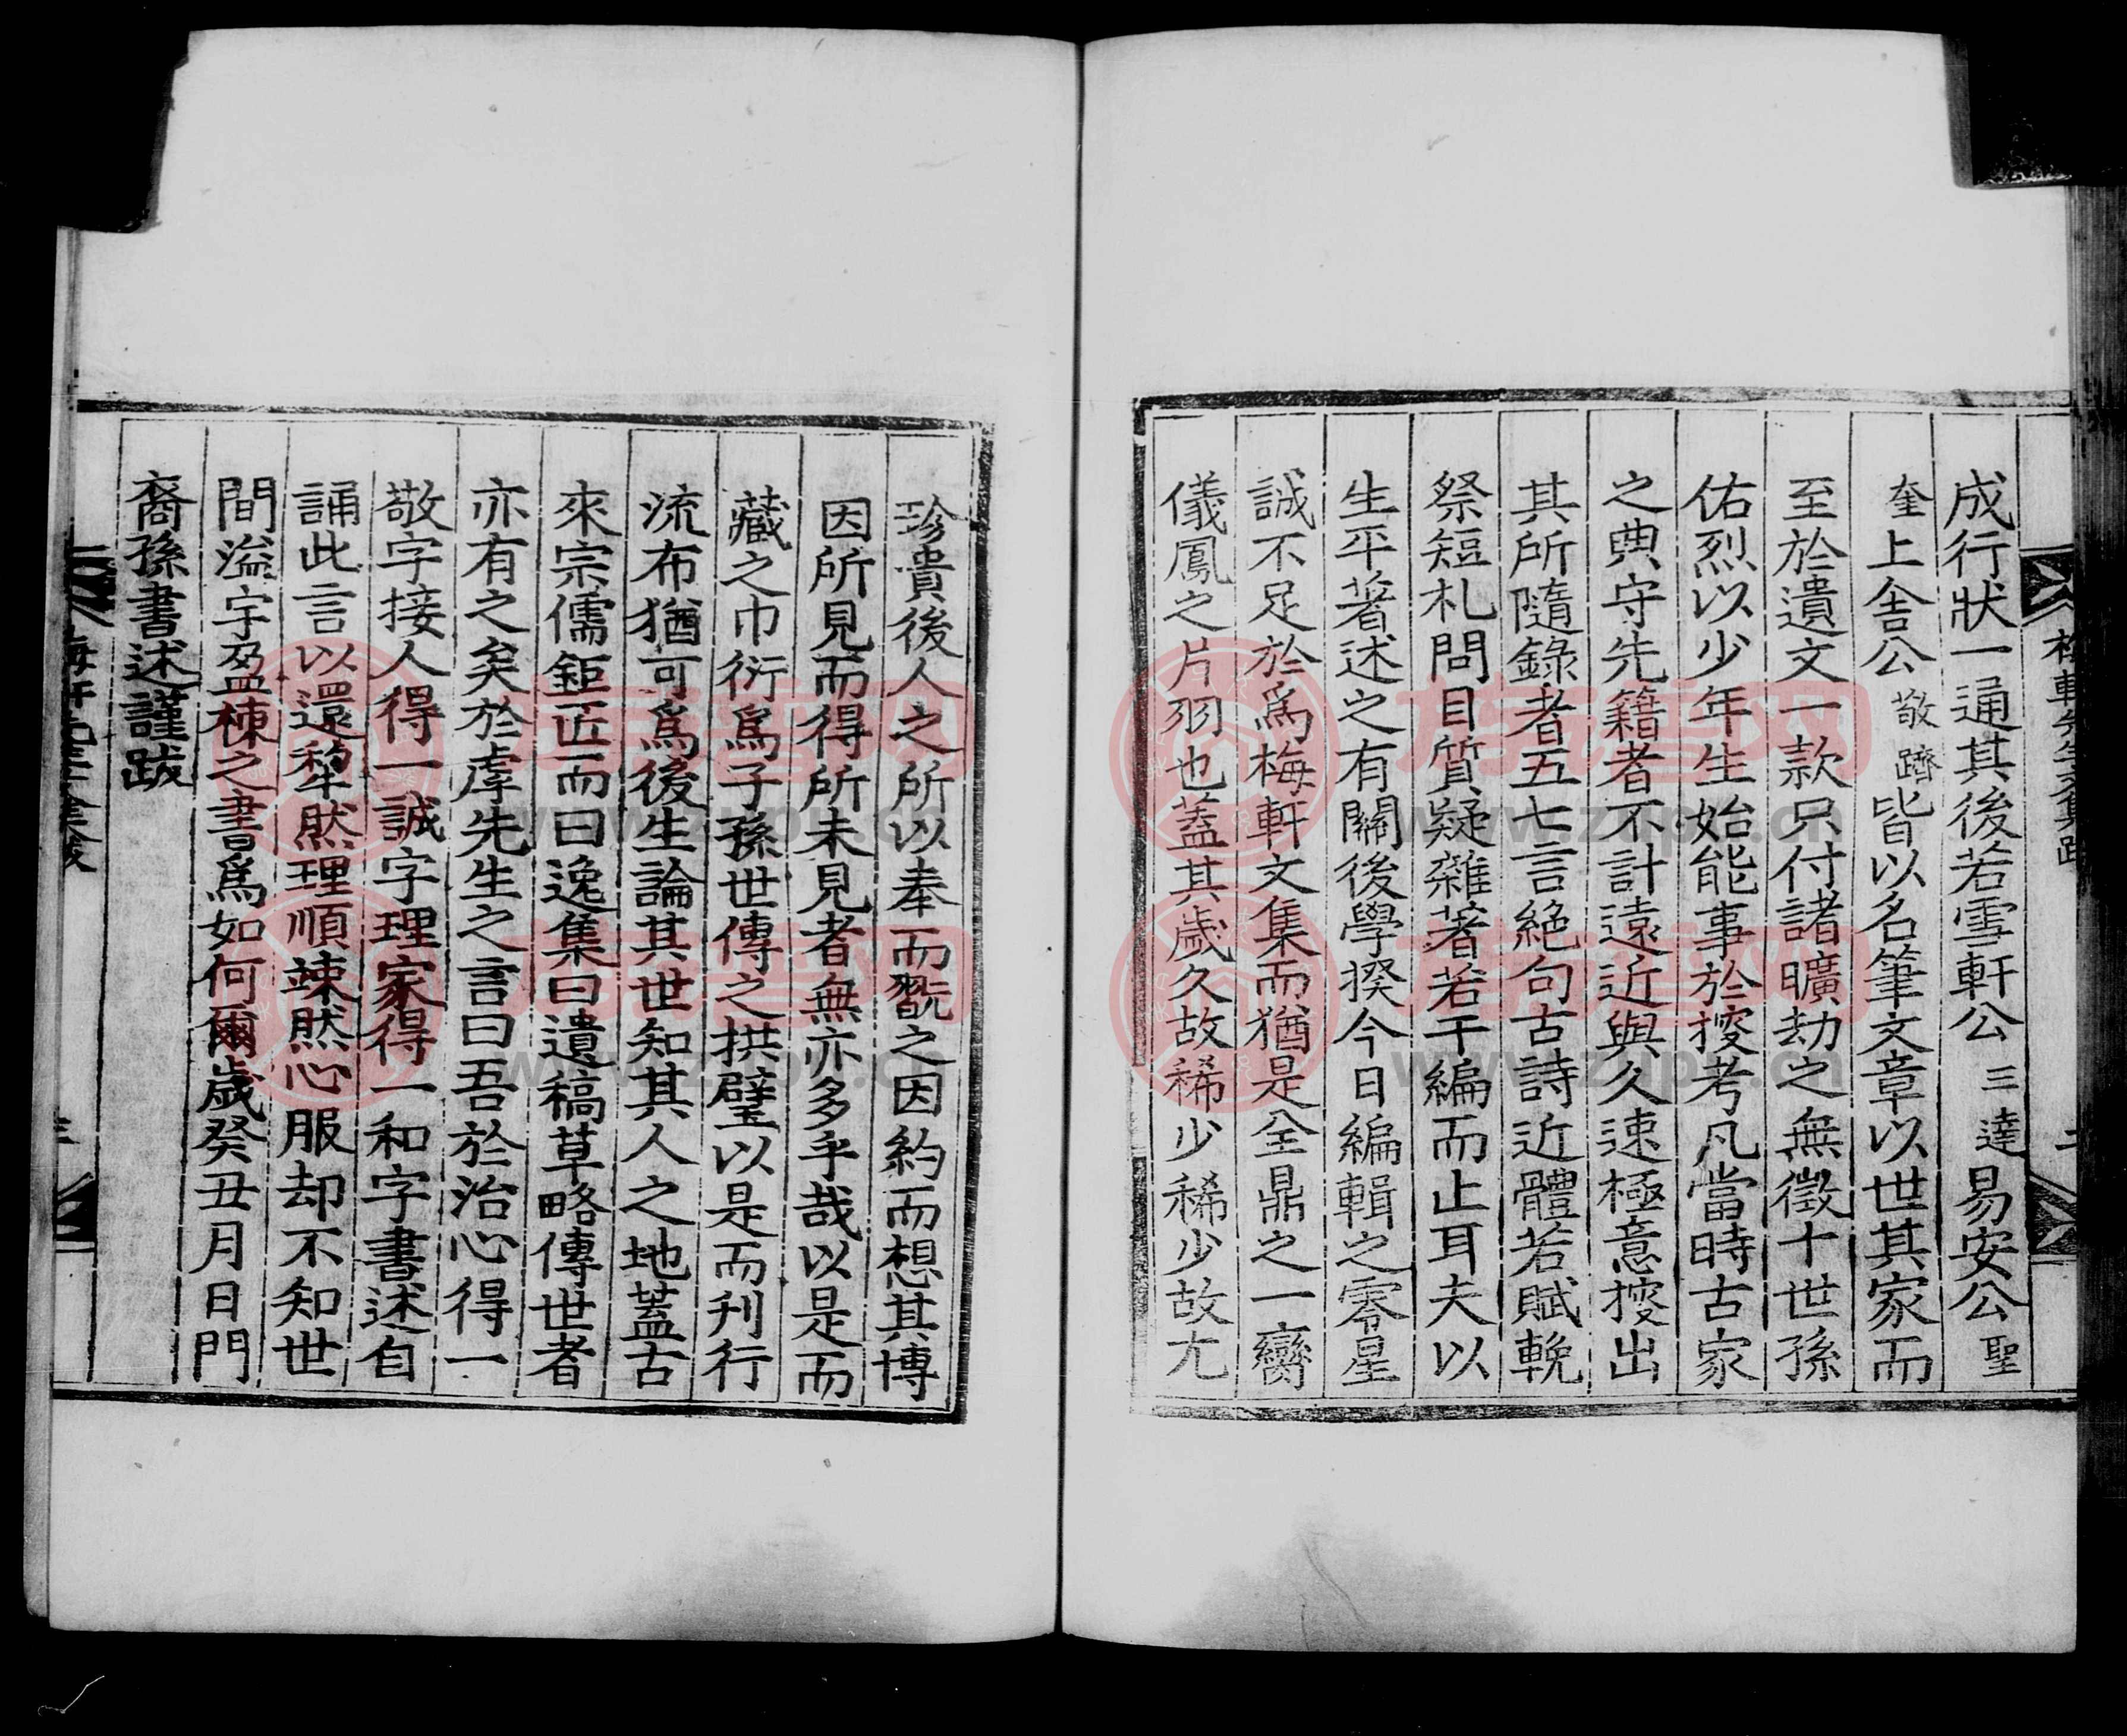 梅軒先生文集跋
二
成行狀一通其後若雪軒公三達易安公聖
奎上舍公敬躋皆以名筆文章以世其家而
至於遺文一款只付諸曠劫之無徵十世孫
佑烈以少年生始能事於搜考凡當時古家
之典守先籍者不計遠近與久速極意搜出
其所隨錄者五七言絶句古詩近體若賦輓
祭短札問目質疑雜著若干編而止耳夫以
生平著述之有關後學揆今日編輯之零星
誠不足於爲梅軒文集而猶是全鼎之一臠
儀鳳之片羽也蓋其歲久故稀少稀少故尤
珍貴後人之所以奉而翫之因約而想其博
因所見而得所未見者無亦多乎哉以是而
藏之巾衍爲子孫世傳之拱璧以是而刋行
流布猶可爲後生論其世知其人之地蓋古
來宗儒鉅匠而曰逸集曰遺稿草略傳世者
亦有之矣於虖先生之言曰吾於治心得一
敬字接人得一誠字理家得一和字書述自
誦此言以還犂然理順竦然心服却不知世
間溢宇盈棟之書爲如何爾歲癸丑月日門
裔孫書述謹跋
三
族谱网
www.zupu.cn
族谱网
www.zupu.cn
族谱网
www.zupu.cn
族谱网
www.zupu.cn